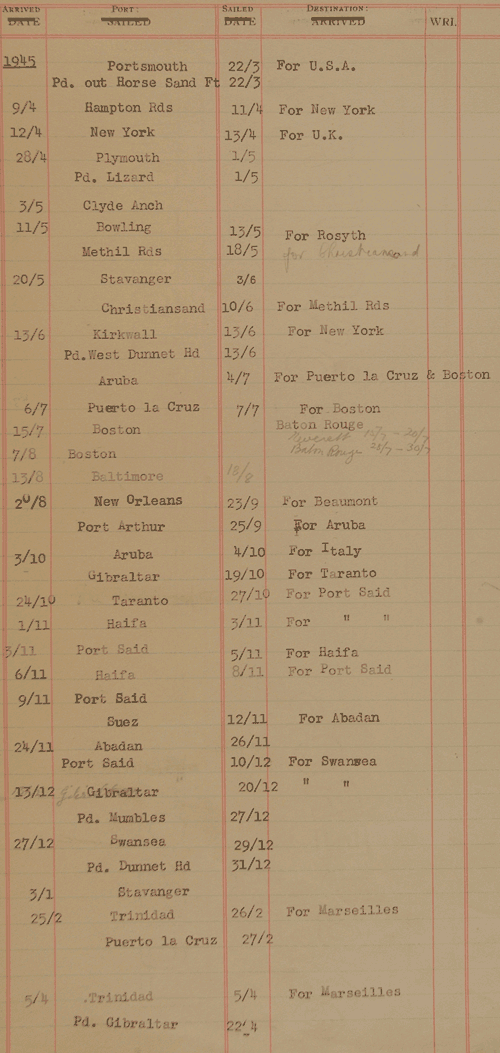 ARRIVED PORT: SAILED DESTINATION:
DATE SAILED DATE ARRIVED WRI.
1945 Portsmouth 22/3 For U.S.A.
Pd. out Horse Sand Ft 22/3
9/4 Hampton Rds 11/4 For New York
12/4 New York 13/4 For U.K.
28/4 Plymouth 1/5
Pd. Lizard 1/5
3/5 Clyde Anch
11/5 Bowling 13/5 For Rosyth
Methil Rds 18/5 for Christiansand
20/5 Stavanger 3/6
Christiansand 10/6 For Methil Rds
13/6 Kirkwall 13/6 For New York
Pd.West Dunnet Hd 13/6
Aruba 4/7 For Puerto la Cruz & Boston
6/7 Puerto la Cruz 7/7 For Boston
15/7 Boston Baton Rouge
7/8 Boston Baton Rouge
13/8 Baltimore 18/8
20/8 New Orleans 23/9 For Beaumont
Port Arthur 25/9 For Aruba
3/10 Aruba 4/10 For Italy
Gibraltar 19/10 For Taranto
24/10 Taranto 27/10 For Port Said
1/11 Haifa 3/11 For " "
3/11 Port Said 5/11 For Haifa
6/11 Haifa 8/11 For Port Said
9/11 Port Said
Suez 12/11 For Abadan
24/11 Abadan 26/11
Port Said 10/12 For Swansea
13/12 Gibraltar 20/12 " "
Pd. Mumbles 27/12
27/12 Swansea 29/12
Pd. Dunnet Hd 31/12
3/1 Stavanger
25/2 Trinidad 26/2 For Marseilles
Puerto la Cruz 27/2
5/4 .Trinidad 5/4 For Marseilles
Pd. Gibraltar 22/4